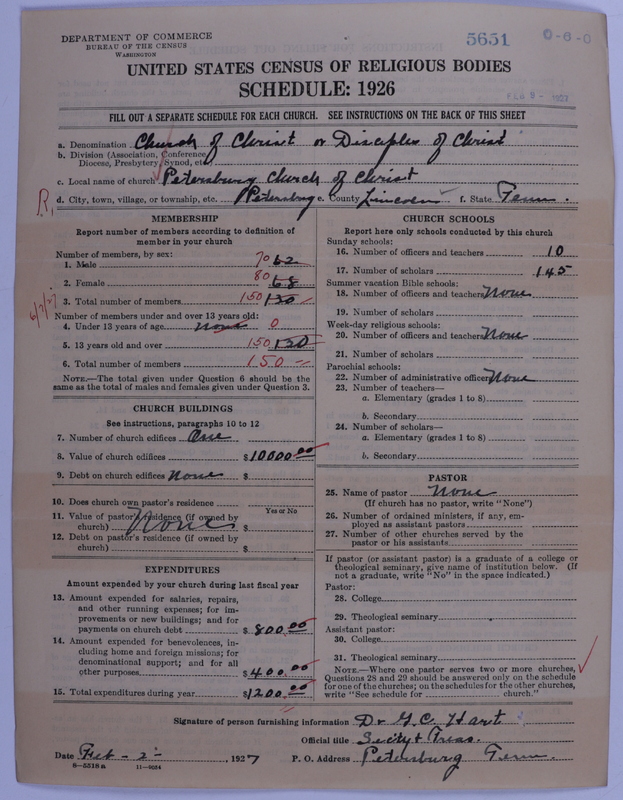 DEPARTMENT OF COMMERCE
BUREAU OF THE CENSUS
WASHINGTON
5651
0-6-0
UNITED STATES CENSUS OF RELIGIOUS BODIES
SCHEDULE: 1926
FEB 9 - 1927
FILL OUT A SEPARATE SCHEDULE FOR EACH CHURCH. SEE INSTRUCTIONS ON THE BACK OF THIS SHEET
a. Denomination Church of Christ or Disciples of Christ
b. Division (Association, Conference
Diocese, Presbytery, Synod, etc.
c. Local name of church Petersburg Church of Christ
R, d. City, town, village, or township, etc. Petersburg e. County Lincoln f. State Tenn.
MEMBERSHIP
Report number of members according to definition of
member in your church
Number of members, by sex:
1. Male 70 62
2. Female 80 68
3. Total number of members 150 130
6/7/27
Number of members under and over 13 years old:
4. Under 13 years of age none 0
5. 13 years old and over 150 130
6. Total number of members 150
NOTE.—The total given under Question 6 should be
same as the total of males and females given under Question 3.
CHURCH BUILDINGS
See instructions, paragraphs 10 to 12
7. Number of church edifices One
8. Value of church edifices $10000.00
9. Debt on church edifices None $
10. Does church own pastor's residence
Yes or No
11. Value of pastor's residence (if owned by
church) None $
12. Debt on pastor's residence (if owned by
church) $
EXPENDITURES
Amount expended by your church during last fiscal year
13. Amount expended for salaries, repairs,
and other running expenses; for im-
provements or new buildings; and for
payments on church debt $800.00
14. Amount expended for benevolences, in-
cluding home and foreign missions; for
denominational support; and for all
other purposes $400.00
15. Total expenditures during year $1200.00
CHURCH SCHOOLS
Report here only schools conducted by this church
Sunday schools:
16. Number of officers and teachers 10
17. Number of scholars 145
Summer vacation Bible schools:
18. Number of officers and teachers None
19. Number of scholars
Week-day religious schools:
20. Number of officers and teachers None
21. Number of scholars
Parochial schools:
22. Number of administrative officers None
23. Number of teachers—
a. Elementary (grades 1 to 8)
b. Secondary
24. Number of scholars—
a. Elementary (grades 1 to 8)
b. Secondary
PASTOR
25. Name of pastor None
(If church has no pastor, write "None")
26. Number of ordained ministers, if any, em-
ployed as assistant pastors
27. Number of other churches served by the
pastor or his assistants
If pastor (or assistant pastor) is a graduate of a college or
theological seminary, give name of institution below. (If
not a graduate, write "No" in the space indicated.)
Pastor:
28. College
29. Theological seminary
Assistant pastor:
30. College
31. Theological seminary
NOTE.—Where one pastor serves two or more churches,
Questions 28 and 29 should be answered only on the schedule
for one of the churches; on the schedules for the other churches,
write "See schedule for church."
Signature of person furnishing information Dr G. C. Hart
Official title Secity & Treas.
Date Feb - 2 -, 1927 P. O. Address Petersburg Tenn.
8-5518 a 11-9054